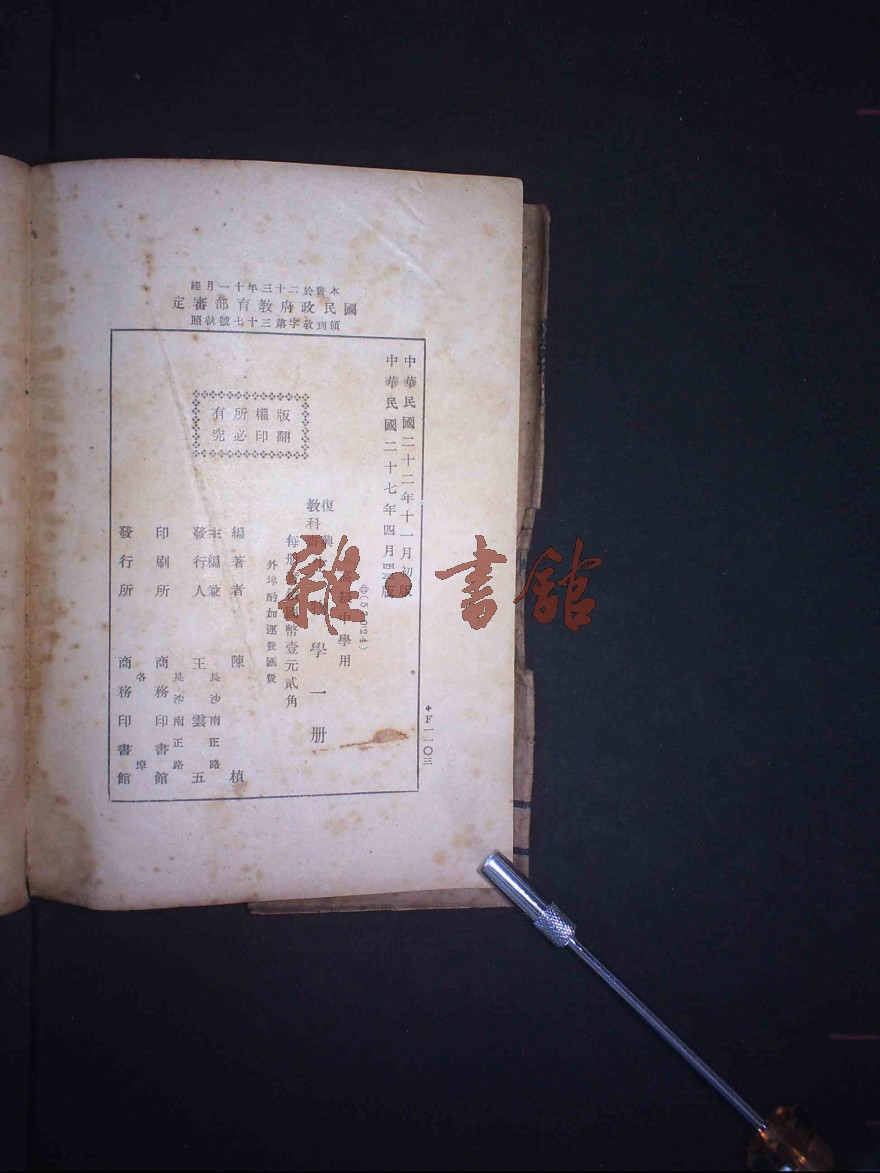 本書於二十三年十一月經
國民政府教育部審定
領到教字第三十七號執照
中華民國二十二年十一月初版
中華民國二十七年四月 版
(57024)
復興
教科書
中學用
學一册
每册 國幣壹元貳角
外埠酌加運費匯費
版權所有
翻印必究
編著者 陳楨
主編兼
發行人 王雲五
長沙南正路
印刷所 商務印書館
長沙南正路
發行所 商務印書館
各埠
F一一〇三
雜·書館